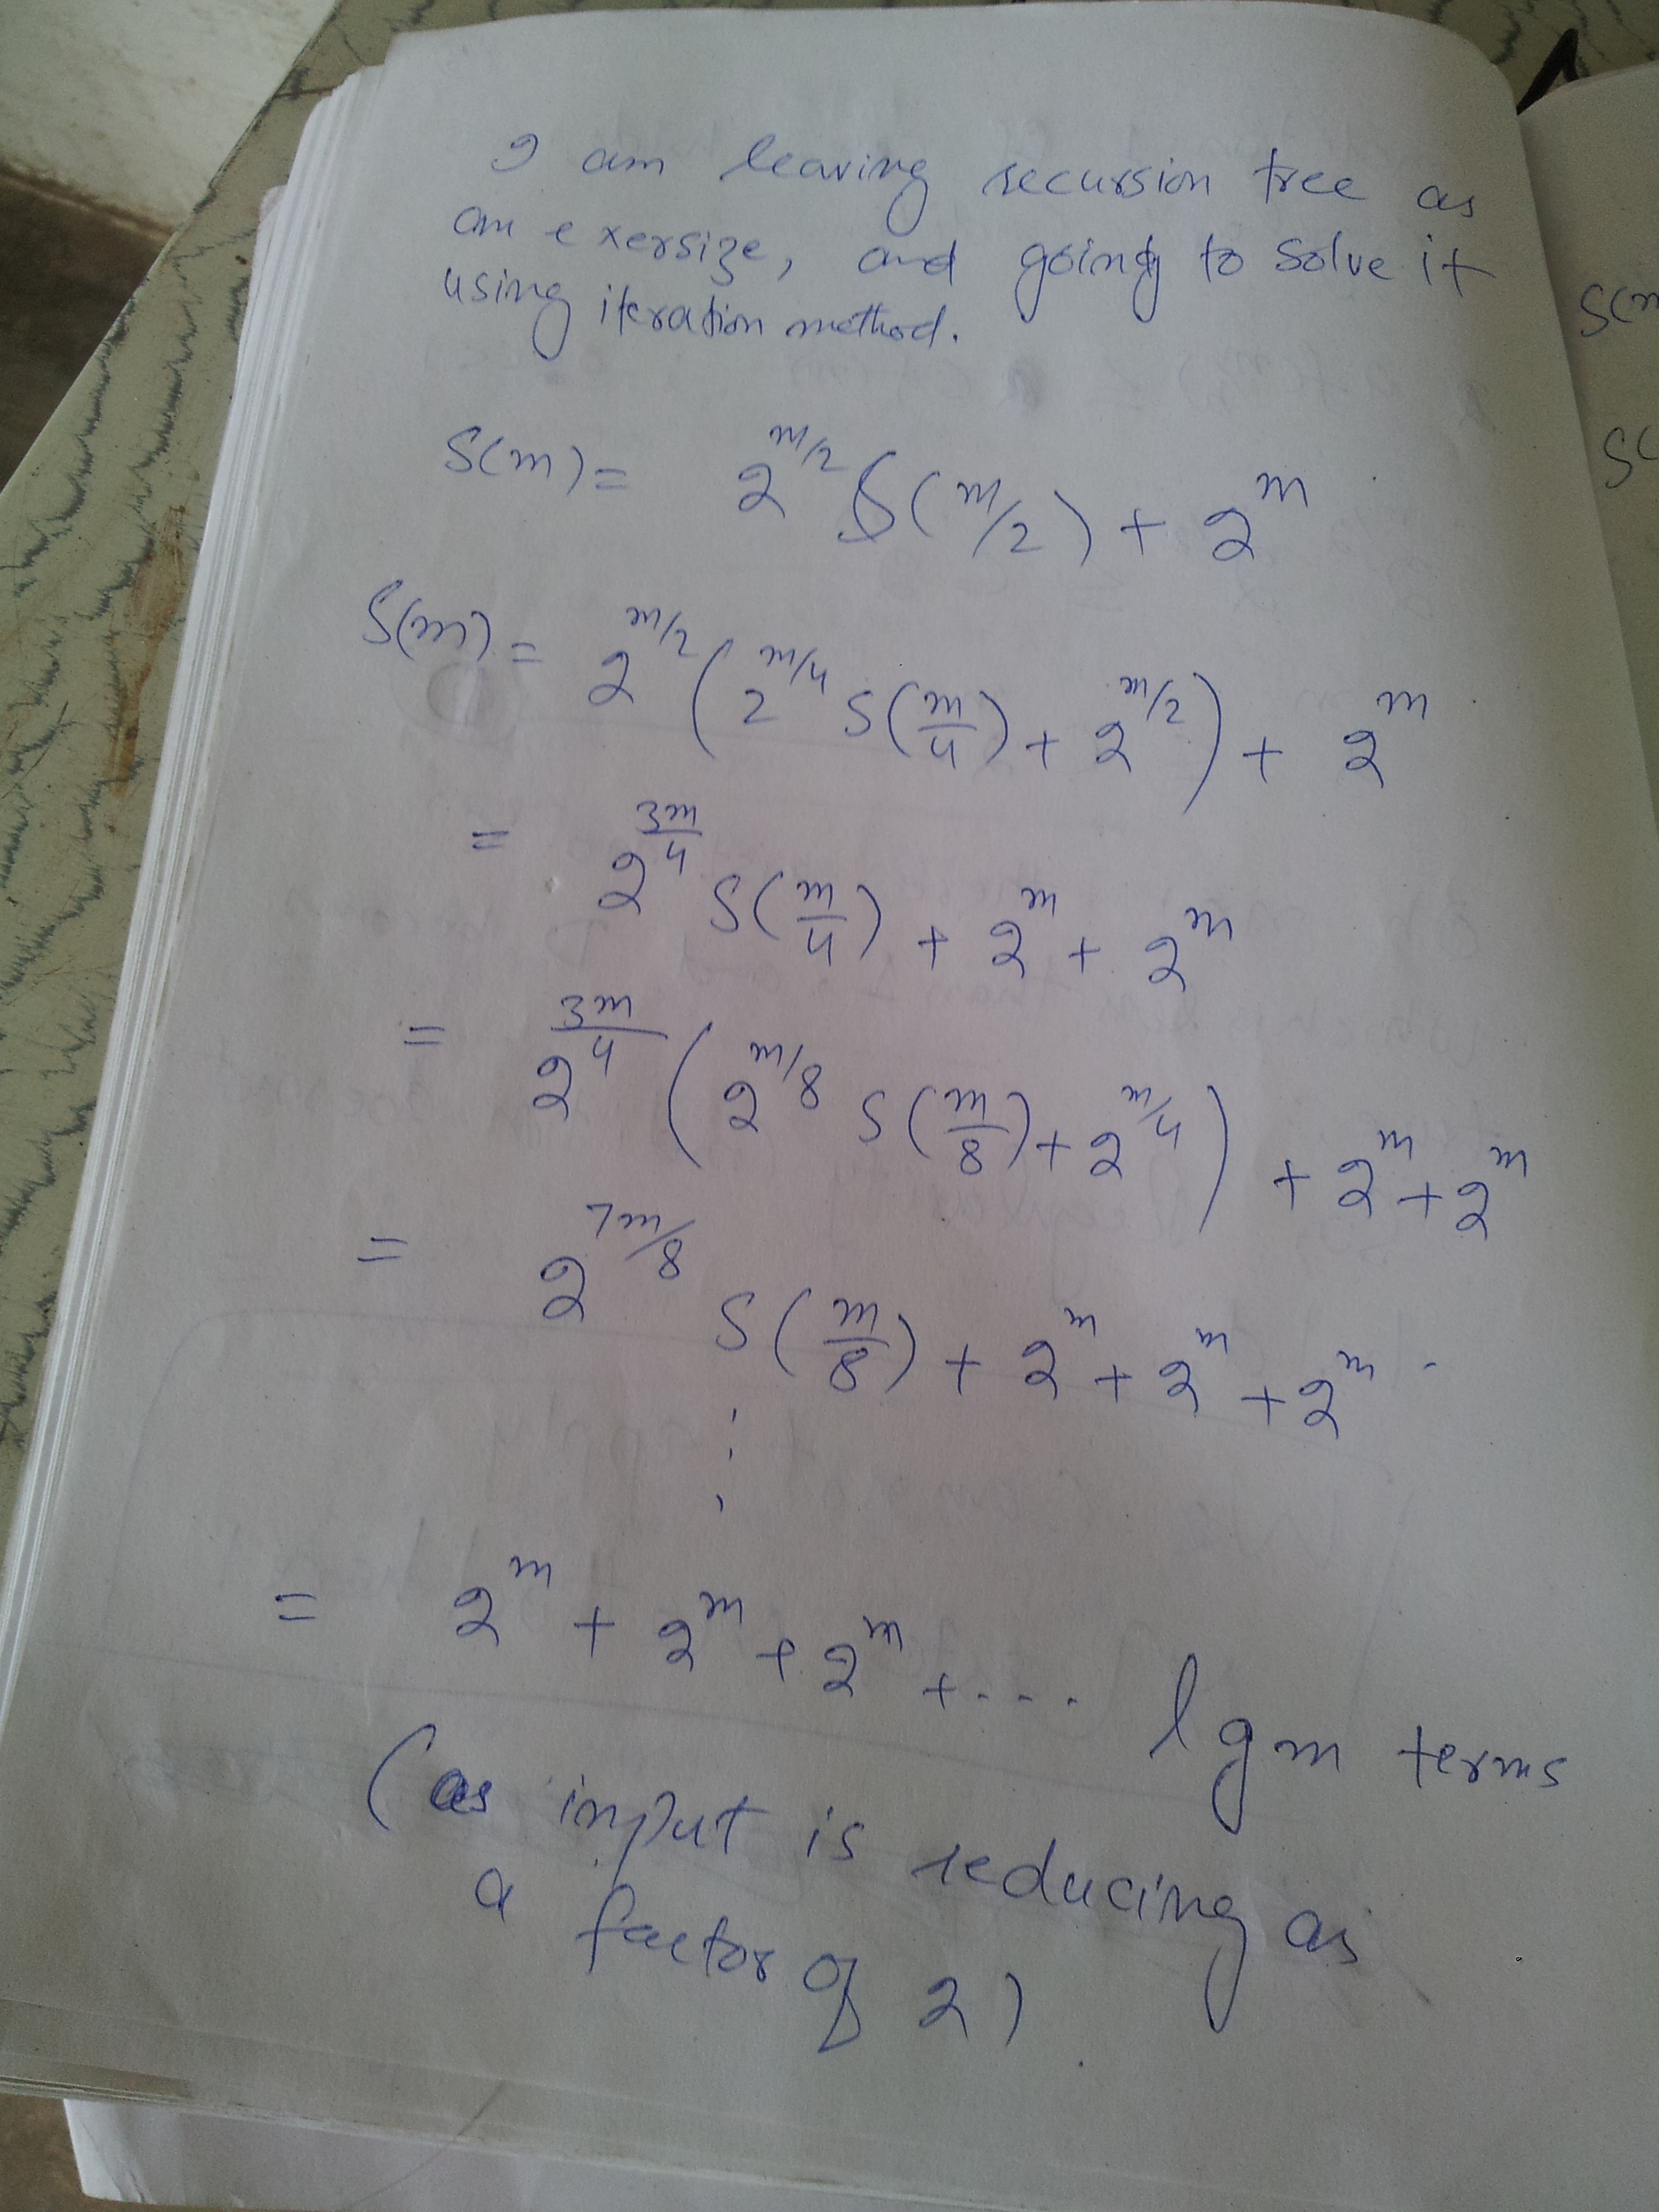 I am leaving reccusion tree as
an exersize, and going to solve it
using iteration method.
S(m) = 2^{m/2} S(m/2) + 2^m
S(m) = 2^{m/2} (2^{m/4} S(m/4) + 2^{m/2}) + 2^m
= 2^{3m/4} S(m/4) + 2^m + 2^m
= 2^{3m/4} (2^{m/8} S(m/8) + 2^{m/4}) + 2^m + 2^m
= 2^{7m/8} S(m/8) + 2^m + 2^m + 2^m .
⋮
= 2^m + 2^m + 2^m + . . . lg m terms
(as input is reducing as
a factor of 2)
S(m
S(